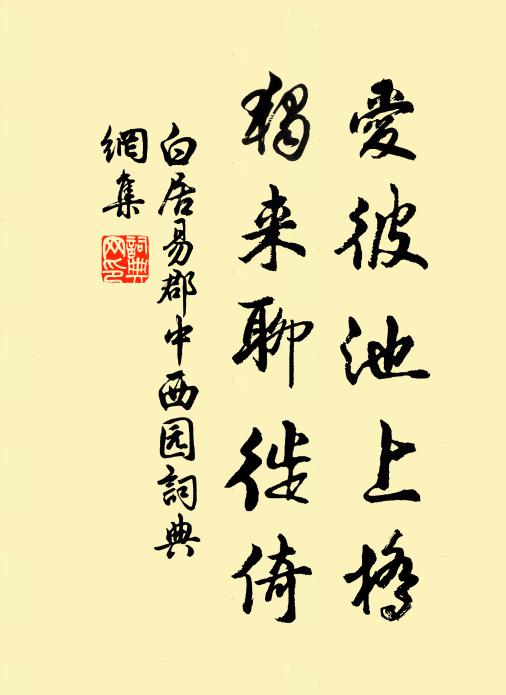 愛彼池上橋
獨来聊徙倚
白居易郡中西园詞典
網集
詞典网印